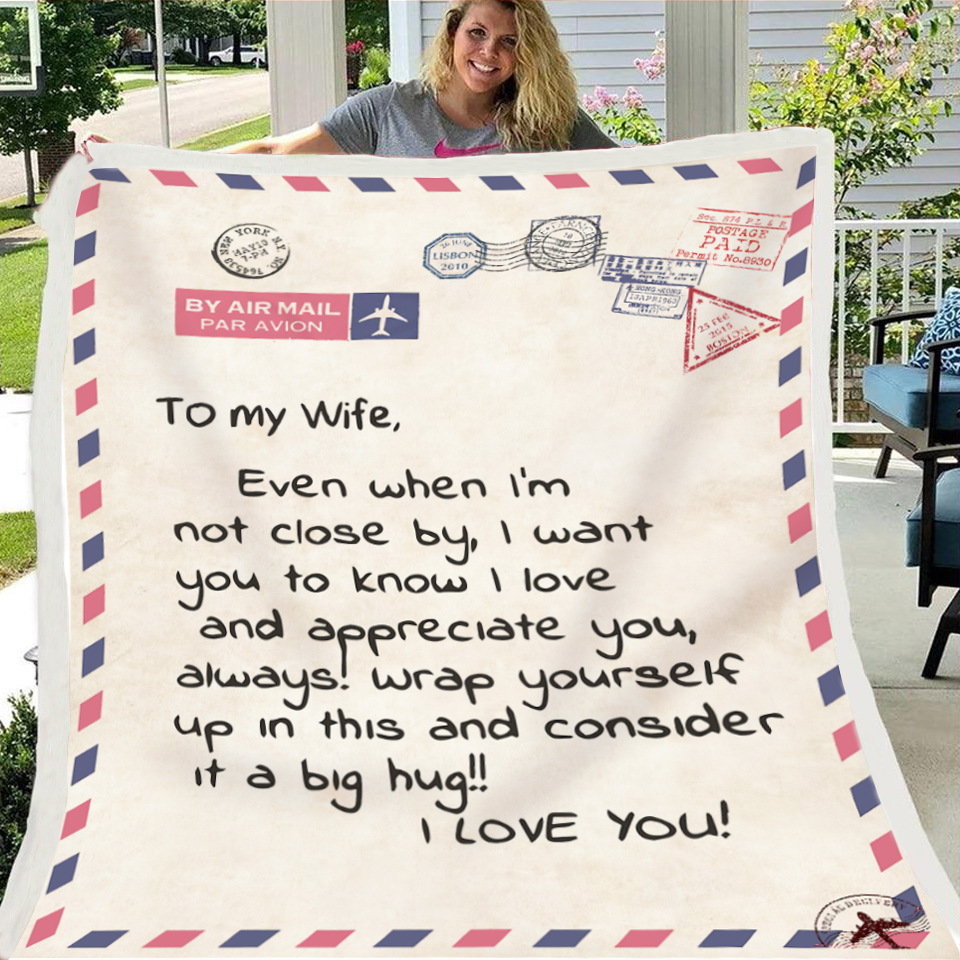 NEW YORK N.Y.
MAY 19
7-PM
LISBON
2010
Sec. 874 P.L & R
POSTAGE
PAID
Permit No.8930
HONG-KONG
BY AIR MAIL
PAR AVION
23 FEB
2015
BOSTON
To my Wife,
Even when I'm
not close by, I want
you to know I love
and appreciate you,
always! wrap yourself
up in this and consider
it a big hug!!
I LOVE YOU!
SPECIAL DELIVERY